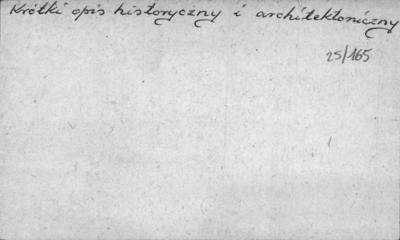 Krótki opis historyczny i architektoniczny
25/165